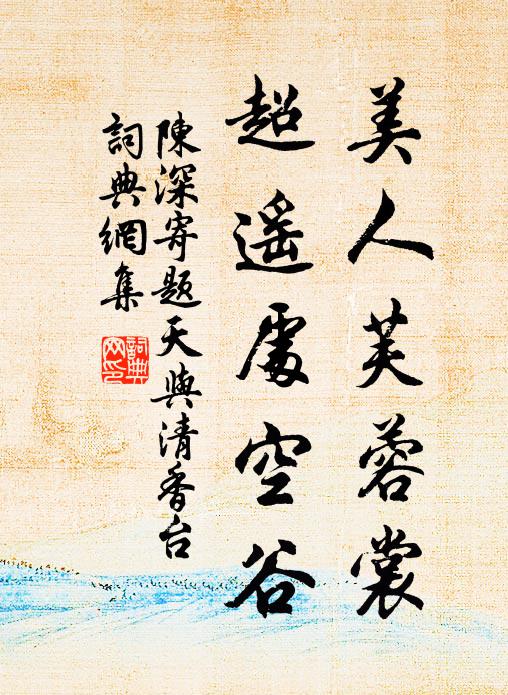 美人芙蓉裳
超遥處空谷
陳深寄題天與清香台
詞典網集
詞典
网印